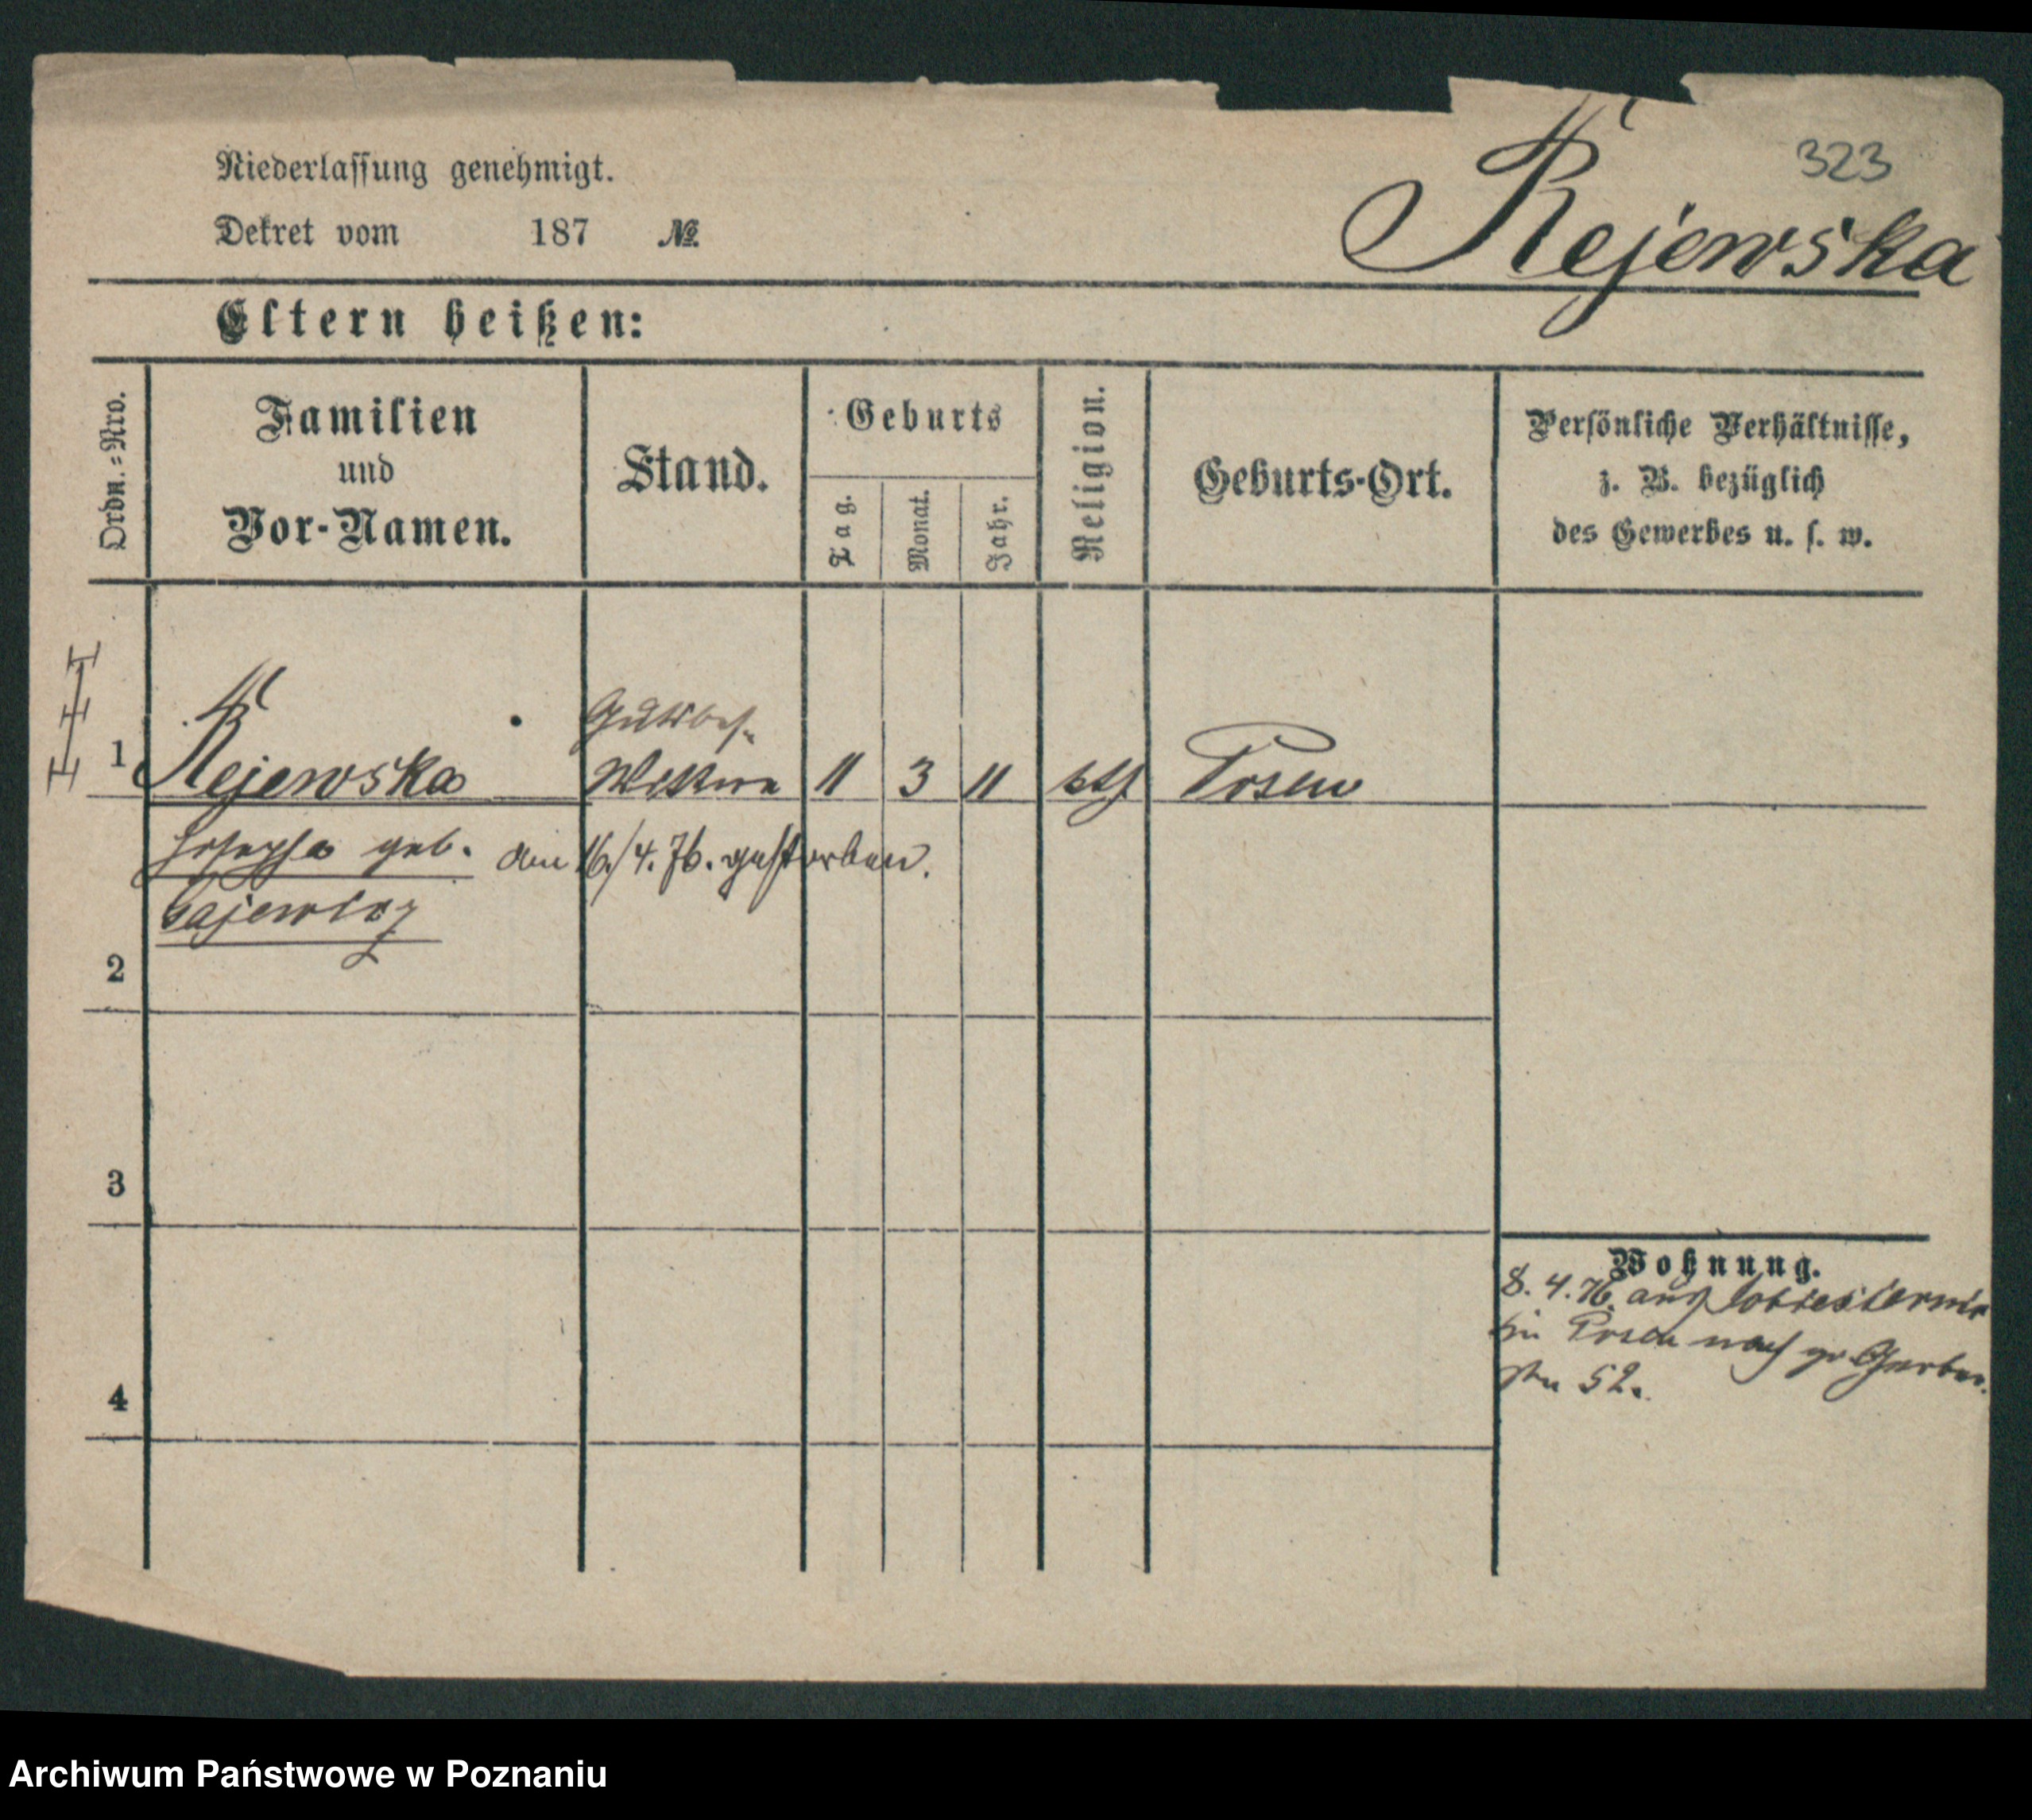 323
Rejewska
Niederlassung genehmigt.
Dekret vom 187 №
Eltern heißen:
Ordn.=Nro.
Familien
und
Vor-Namen.
Stand.
Geburts
Tag.
Monat.
Jahr.
Religion.
Geburts-Ort.
Persönliche Verhältnisse,
z. B. bezüglich
des Gewerbes u. s. w.
1 Rejewska Gutsbes. Wittwe 11 3 11 kth Posen
Josepha geb. den 16/4. 76. gestorben.
2
3
4
Wohnung.
8. 4. 76. aus
in Posen nach gr Gerber
str 52.
Archiwum Państwowe w Poznaniu